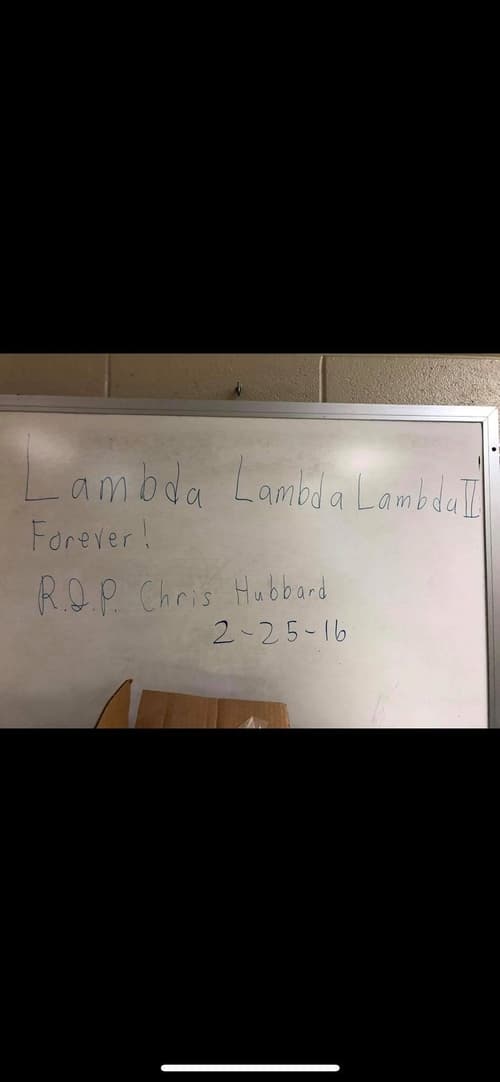 Lambda Lambda Lambda II
Forever!
R.I.P. Chris Hubbard
2-25-16